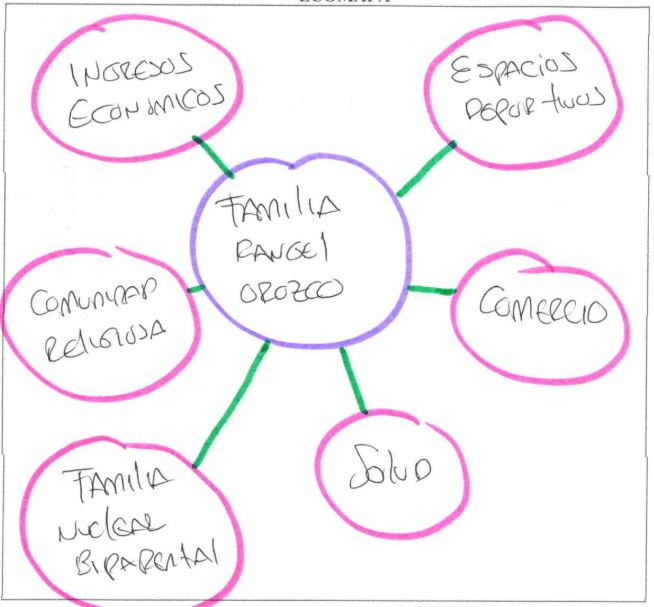 ECOMAPA
INGRESOS
ECONOMICOS
ESPACIOS
DEPORTIVOS
FAMILIA
RANGEL
OROZCO
COMUNIDAD
RELIGIOSA
COMERCIO
FAMILIA
NUCLEAR
BIPARENTAL
SALUD